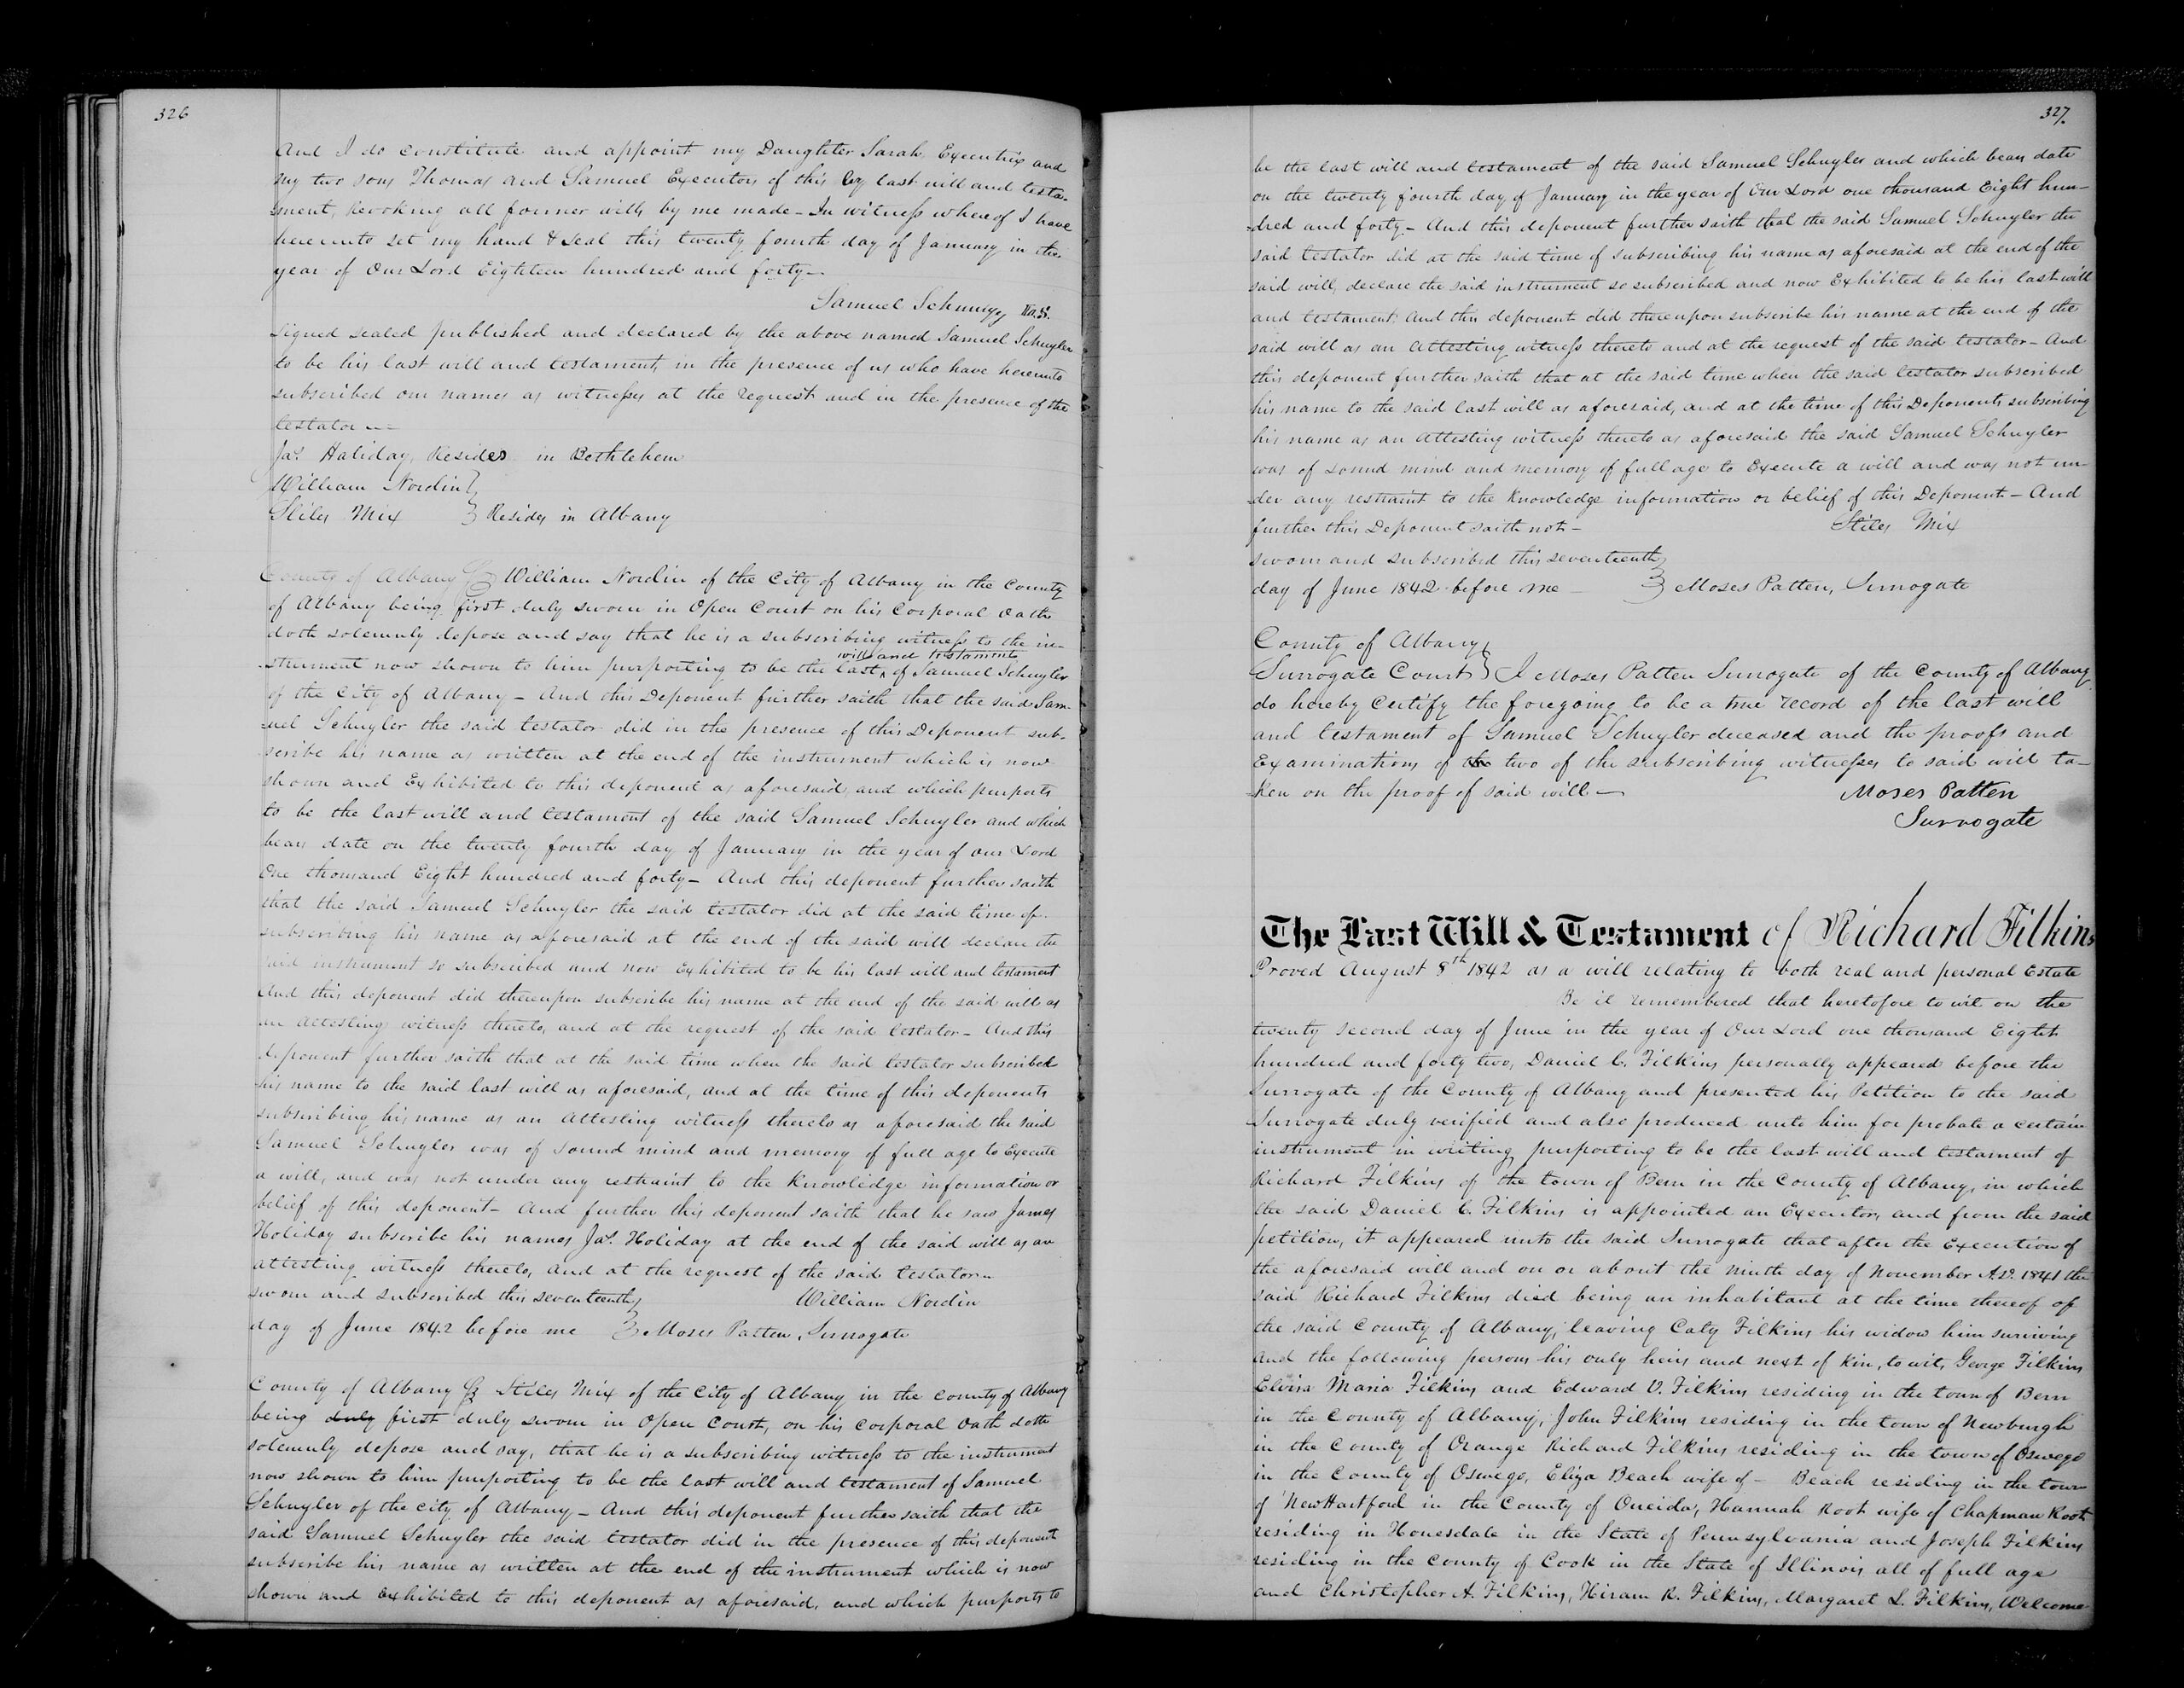 326
And I do constitute and appoint my Daughter Sarah Executrix and
my two sons Thomas and Samuel Executors of this my last will and testa-
-ment, Revoking all former wills by me made – In witness whereof I have
hereunto set my hand & seal this twenty fourth day of January in the
year of Our Lord Eighteen hundred and forty –
Samuel Schuyler L.S.
Signed sealed published and declared by the above named Samuel Schuyler
to be his last will and testament, in the presence of us who have hereunto
subscribed our names as witnesses at the request and in the presence of the
testator –
Jas. Haliday, Resides in Bethlehem
William Nordin }
Stiles Mix } Resides in Albany
County of Albany ss William Nordin of the City of Albany in the County
of Albany being first duly sworn in Open Court on his Corporal Oath
doth solemnly depose and say that he is a subscribing witness to the in-
will and testament
-strument now shown to him purporting to be the last ^ of Samuel Schuyler
of the City of Albany – And this Deponent further saith that the said Sam-
-uel Schuyler the said testator did in the presence of this Deponent sub-
-scribe his name as written at the end of the instrument which is now
shown and Exhibited to this deponent as aforesaid, and which purports
to be the last will and testament of the said Samuel Schuyler and which
bears date on the twenty fourth day of January in the year of our Lord
One thousand Eight hundred and forty – And this deponent further saith
that the said Samuel Schuyler the said testator did at the said time of
subscribing his name as aforesaid at the end of the said will declare the
said instrument so subscribed and now Exhibited to be his last will and testament
And this deponent did thereupon subscribe his name at the end of the said will as
an attesting witness thereto, and at the request of the said testator – And this
deponent further saith that at the said time when the said testator subscribed
his name to the said last will as aforesaid, and at the time of this deponents
subscribing his name as an attesting witness thereto as aforesaid the said
Samuel Schuyler was of sound mind and memory of full age to Execute
a will, and was not under any restraint to the knowledge information or
belief of this deponent – And further this deponent saith that he saw James
Holiday subscribe his names Jas. Holiday at the end of the said will as an
attesting witness thereto, and at the request of the said testator –
sworn and subscribed this seventeenth } William Nordin
day of June 1842 before me } Moses Patten, Surrogate
County of Albany ss Stiles Mix of the City of Albany in the County of Albany
being duly first duly sworn in Open Court, on his corporal oath doth
solemnly depose and say, that he is a subscribing witness to the instrument
now shown to him purporting to be the last will and testament of Samuel
Schuyler of the city of Albany – And this deponent further saith that the
said Samuel Schuyler the said testator did in the presence of this deponent
subscribe his name as written at the end of the instrument which is now
shown and exhibited to this deponent as aforesaid, and which purports to
327.
be the last will and testament of the said Samuel Schuyler and which bears date
on the twenty fourth day of January in the year of Our Lord one thousand Eight hun-
-dred and forty – And this deponent further saith that the said Samuel Schuyler the
said testator did at the said time of subscribing his name as aforesaid at the end of the
said will, declare the said instrument so subscribed and now Exhibited to be his last will
and testament. And this deponent did thereupon subscribe his name at the end of the
said will as an attesting witness thereto and at the request of the said testator – And
this deponent further saith that at the said time when the said testator subscribed
his name to the said last will as aforesaid, and at the time of this Deponents subscribing
his name as an attesting witness thereto as aforesaid the said Samuel Schuyler
was of sound mind and memory of full age to Execute a will and was not un-
-der any restraint to the knowledge information or belief of this Deponent – And
further this Deponent saith not – Stiles Mix
sworn and subscribed this seventeenth }
day of June 1842 before me – } Moses Patten, Surrogate
County of Albany }
Surrogate Court } I Moses Patten Surrogate of the County of Albany
do hereby Certify the foregoing to be a true record of the last will
and testament of Samuel Schuyler deceased and the proofs and
Examinations of the two of the subscribing witnesses to said will ta-
-ken on the proof of said will – Moses Patten
Surrogate
The Last Will & Testament of Richard Filkins
Proved August 8th 1842 as a will relating to both real and personal Estate
Be it remembered that heretofore to wit on the
twenty second day of June in the year of Our Lord one thousand Eight
hundred and forty two, Daniel C. Filkins personally appeared before the
Surrogate of the County of Albany and presented his Petition to the said
Surrogate duly verified and also produced unto him for probate a certain
instrument in writing purporting to be the last will and testament of
Richard Filkins of the town of Bern in the County of Albany, in which
the said Daniel C. Filkins is appointed an Executor, and from the said
petition, it appeared unto the said Surrogate that after the Execution of
the aforesaid will and on or about the ninth day of November A.D. 1841 the
said Richard Filkins died being an inhabitant at the time thereof of
the said County of Albany, leaving Caty Filkins his widow him surviving
and the following persons his only heirs and next of kin, to wit, George Filkins
Elvira Maria Filkins and Edward V. Filkins residing in the town of Bern
in the County of Albany, John Filkins residing in the town of Newburgh
in the County of Orange Richard Filkins residing in the town of Oswego
in the County of Oswego, Eliza Beach wife of – Beach residing in the town
of New Hartford in the County of Oneida, Hannah Root wife of Chapman Root
residing in Honesdale in the State of Pennsylvania and Joseph Filkins
residing in the County of Cook in the State of Illinois all of full age
and Christopher A. Filkins, Hiram R. Filkins, Margaret L. Filkins, Welcome